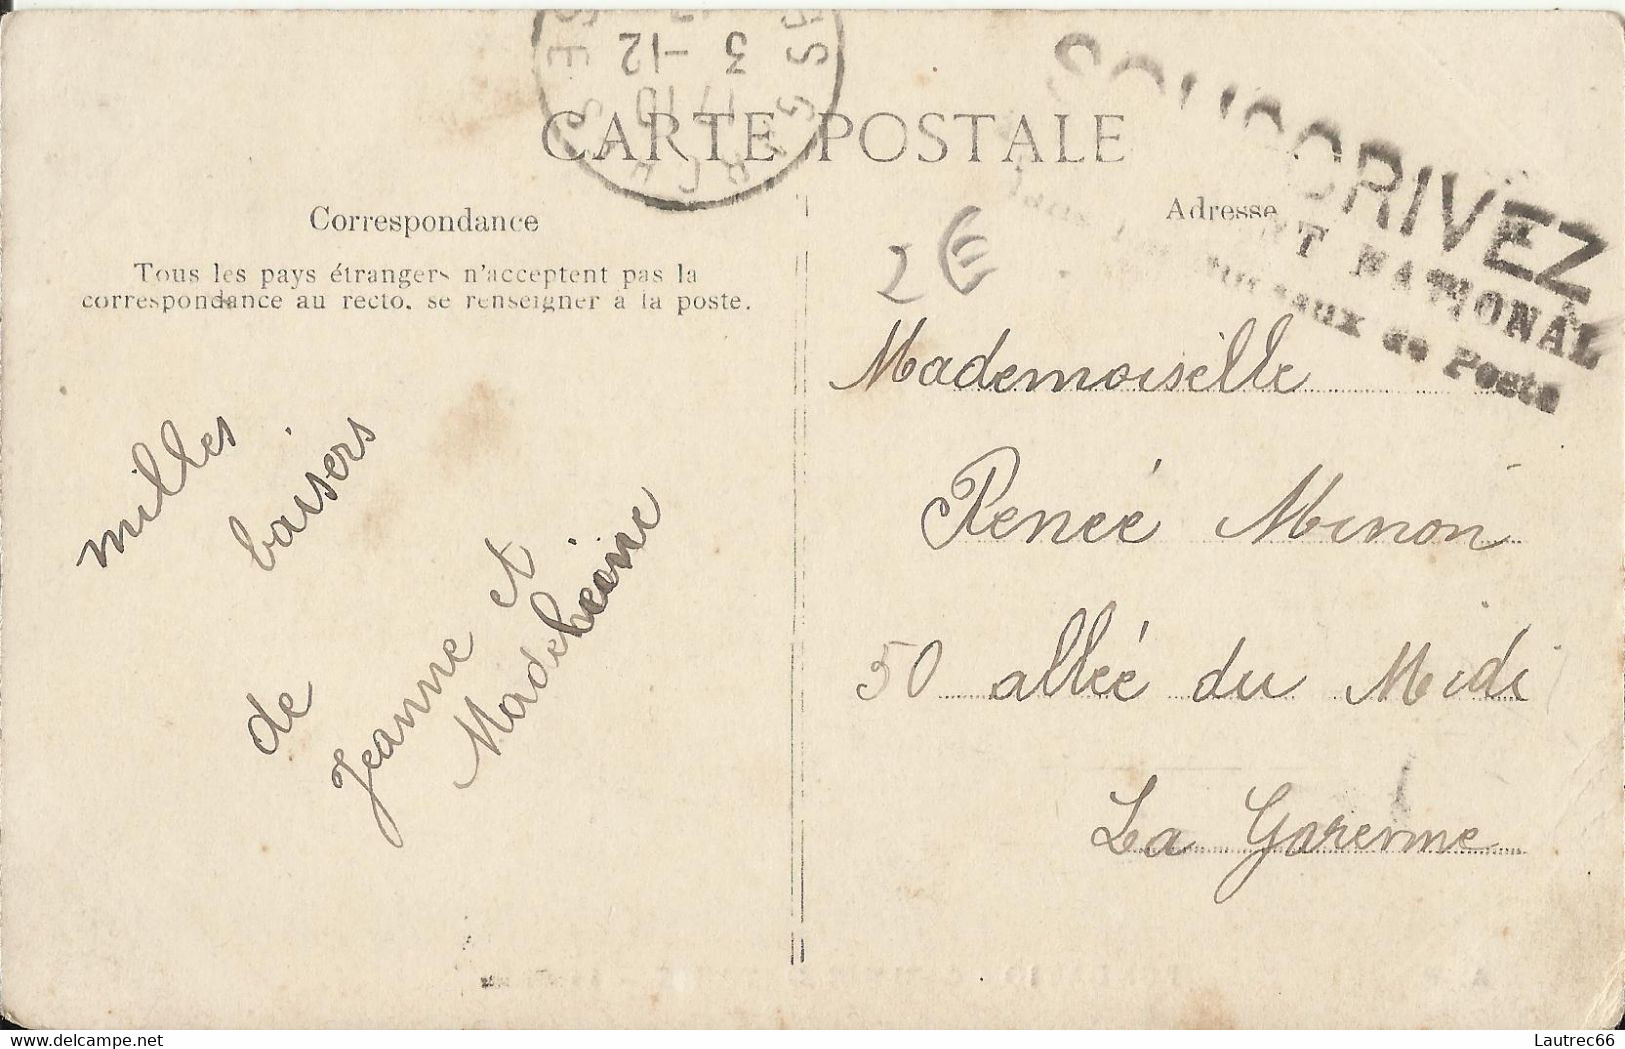 CARTE POSTALE
Correspondance
Tous les pays étrangers n'acceptent pas la
correspondance au recto, se renseigner a la poste.
milles
baisers
de
Jeanne et
Madeleine
3 -12
Adresse
SOUSCRIVEZ
NATIONAL
de Poste
2 €
Mademoiselle
Renée Minon
50 allée du Midi
La Garenne
delcampe.net
Lautrec66